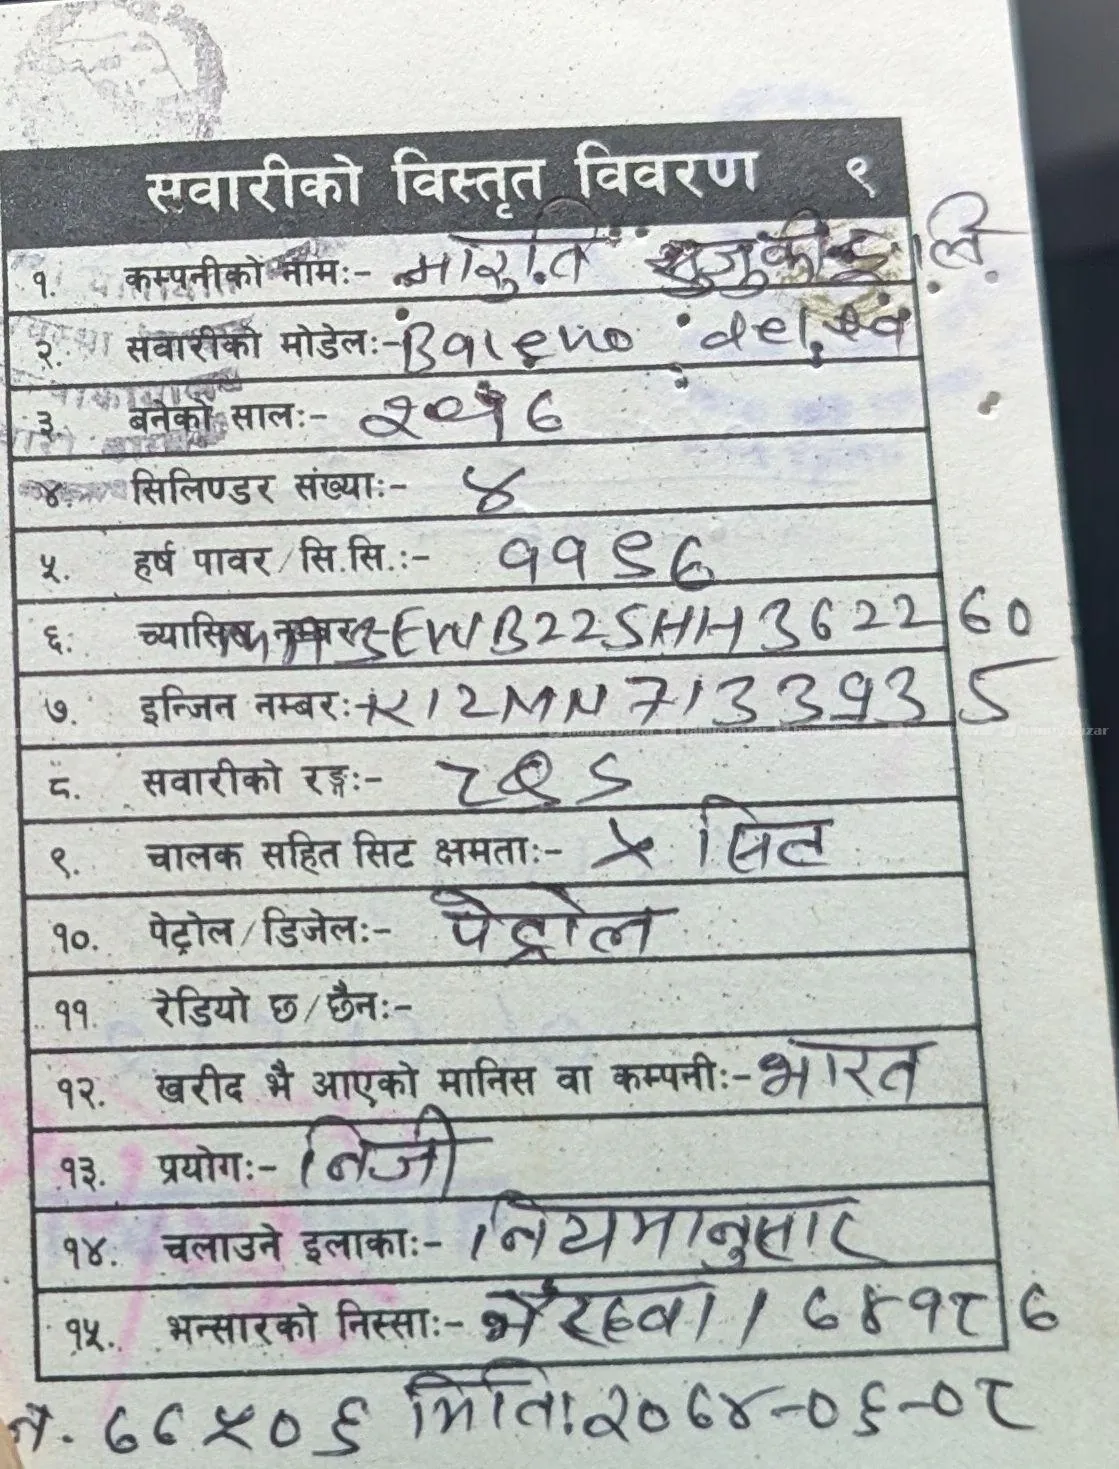 सवारीको विस्तृत विवरण ९
१. कम्पनीको नामः- मारुति सुजुकी इ लि.
२. सवारीको मोडेलः- Baleno delta
३. बनेको सालः- २०१७
४. सिलिण्डर संख्याः- ४
५. हर्ष पावर/सि.सि.ः- ११९७
६. च्यासिस नम्बरः- EWB22SHH362260
७. इन्जिन नम्बरः- K12MN7133935
८. सवारीको रङ्गः- RES
९. चालक सहित सिट क्षमताः- ५ सिट
१०. पेट्रोल/डिजेलः- पेट्रोल
११. रेडियो छ/छैनः-
१२. खरीद भै आएको मानिस वा कम्पनीः- भारत
१३. प्रयोगः- निजी
१४. चलाउने इलाकाः- नियमानुसार
१५. भन्सारको निस्साः- भैरहवा । ७४१८७
नं. ७७५०६ मितिः २०७४-०६-०८